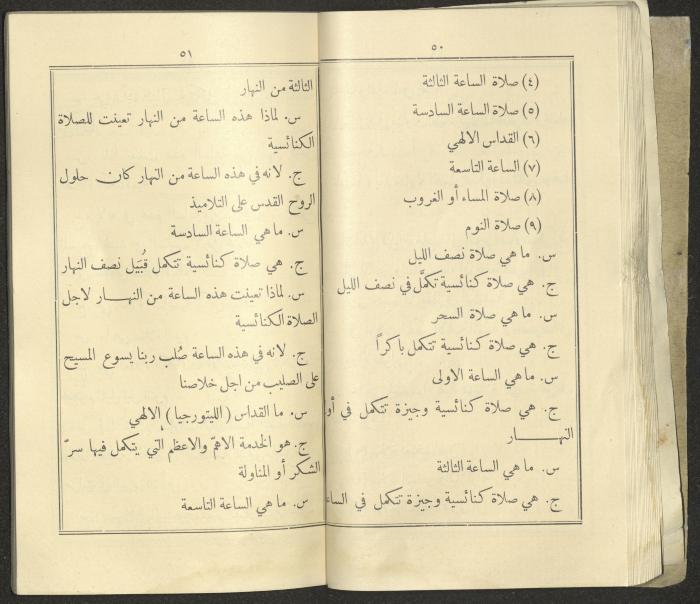 ٥٠
(٤) صلاة الساعة الثالثة
(٥) صلاة الساعة السادسة
(٦) القداس الالهي
(٧) الساعة التاسعة
(٨) صلاة المساء أو الغروب
(٩) صلاة النوم
س. ما هي صلاة نصف الليل
ج. هي صلاة كنائسية تكمَّل في نصف الليل
س. ما هي صلاة السحر
ج. هي صلاة كنائسية تتكمل باكراً
س. ما هي الساعة الاولى
ج. هي صلاة كنائسية وجيزة تتكمل في أو
النهـــار
س. ما هي الساعة الثالثة
ج. هي صلاة كنائسية وجيزة تتكمل في الساء
٥١
الثالثة من النهار
س. لماذا هذه الساعة من النهار تعينت للصلاة
الكنائسية
ج. لانه في هذه الساعة من النهار كان حلول
الروح القدس على التلاميذ
س. ما هي الساعة السادسة
ج. هي صلاة كنائسية تتكمل قُبَيل نصف النهار
س. لماذا تعينت هذه الساعة من النهـــار لاجل
الصلاة الكنائسية
ج. لانه في هذه الساعة صُلب ربنا يسوع المسيح
على الصليب من اجل خلاصنا
س. ما القداس (الليتورجيا) الالهي
ج. هو الخدمة الاهمّ والاعظم التي يتكمل فيها سرّ
الشكر أو المناولة
س. ما هي الساعة التاسعة